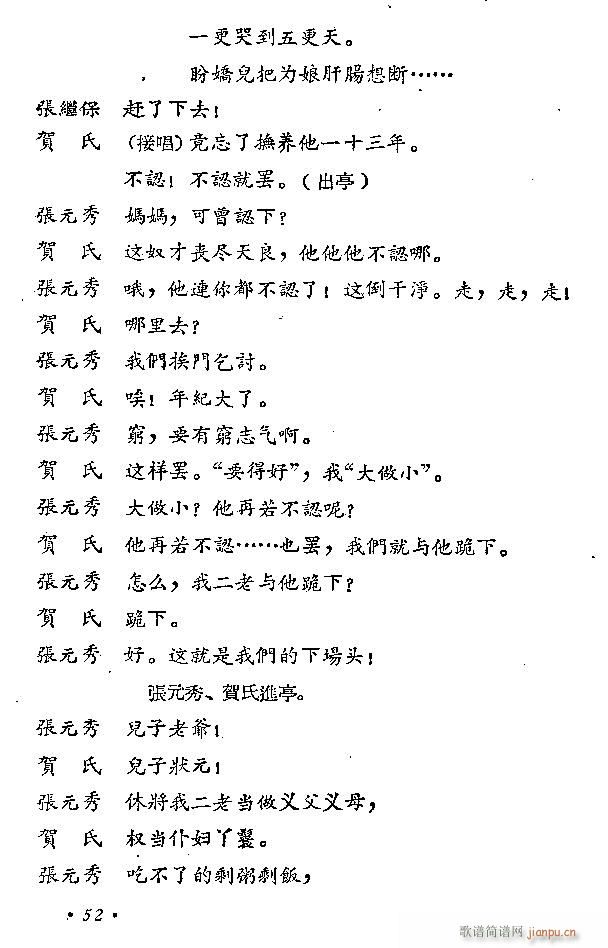 一更哭到五更天。
盼嬌兒把为娘肝腸想断……
張繼保　赶了下去！
賀　氏　（接唱）竟忘了撫养他一十三年。
不認！不認就罢。（出亭）
張元秀　媽媽，可曾認下？
賀　氏　这奴才丧尽天良，他他他不認哪。
張元秀　哦，他連你都不認了！这倒干淨。走，走，走！
賀　氏　哪里去？
張元秀　我們挨門乞討。
賀　氏　唉！年紀大了。
張元秀　窮，要有窮志气啊。
賀　氏　这样罢。“要得好”，我“大做小”。
張元秀　大做小？他再若不認呢？
賀　氏　他再若不認……也罢，我們就与他跪下。
張元秀　怎么，我二老与他跪下？
賀　氏　跪下。
張元秀　好。这就是我們的下場头！
張元秀、賀氏進亭。
張元秀　兒子老爺！
賀　氏　兒子狀元！
張元秀　休將我二老当做义父义母，
賀　氏　权当仆妇丫鬟。
張元秀　吃不了的剩粥剩飯，
· 52 ·
歌谱简谱网
jianpu.cn